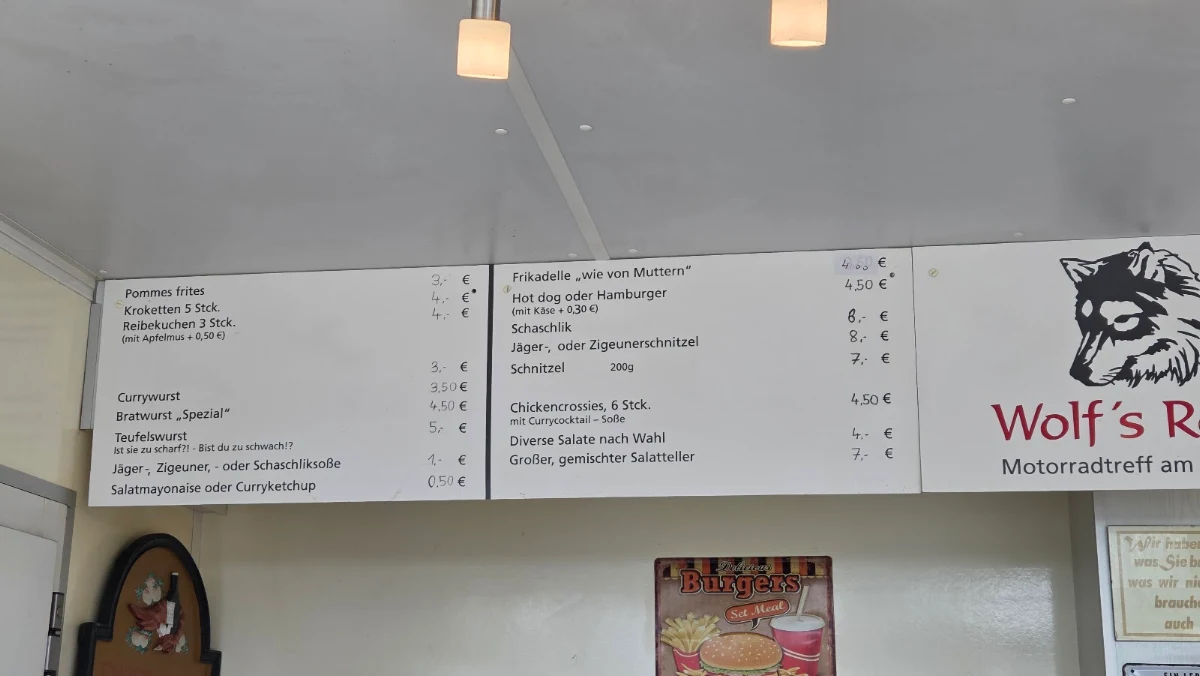 Pommes frites 3,- €
Kroketten 5 Stck. 4,- €
Reibekuchen 3 Stck. 4,- €
(mit Apfelmus + 0,50 €)
3,- €
Currywurst 3,50 €
Bratwurst „Spezial“ 4,50 €
Teufelswurst 5,- €
Ist sie zu scharf?! - Bist du zu schwach!?
Jäger-, Zigeuner, - oder Schaschliksoße 1,- €
Salatmayonaise oder Curryketchup 0,50 €
Frikadelle „wie von Muttern“ €
Hot dog oder Hamburger 4,50 €
(mit Käse + 0,30 €)
Schaschlik 6,- €
Jäger-, oder Zigeunerschnitzel 8,- €
Schnitzel 200g 7,- €
Chickencrossies, 6 Stck. 4,50 €
mit Currycocktail – Soße
Diverse Salate nach Wahl 4,- €
Großer, gemischter Salatteller 7,- €
Wolf´s R
Motorradtreff am
Delicious
Burgers
Set Meal
Wir haben
was Sie
was wir
brauche
auch